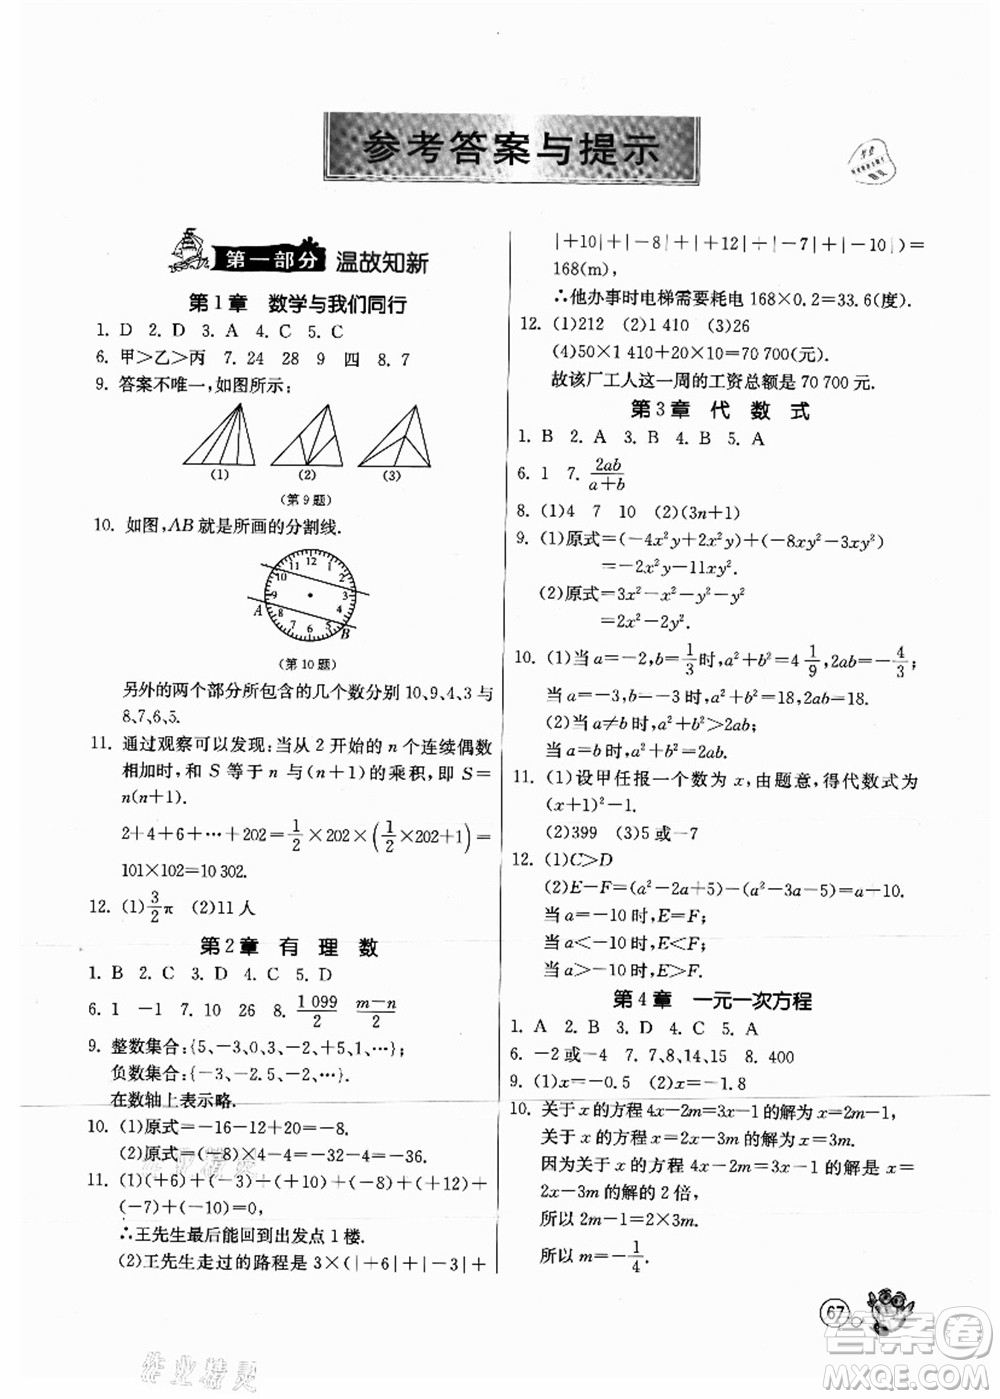 参考答案与提示
第一部分 温故知新
第1章 数学与我们同行
1. D 2. D 3. A 4. C 5. C
6. 甲>乙>丙 7. 24 28 9 四 8. 7
9. 答案不唯一,如图所示:
(1) (2) (3)
(第9题)
10. 如图,AB就是所画的分割线.
12 1 2 3 4 5 6 7 8 9 10 11
A B
(第10题)
另外的两个部分所包含的几个数分别10、9、4、3与
8、7、6、5.
11. 通过观察可以发现:当从2开始的n个连续偶数
相加时,和S等于n与(n+1)的乘积,即S=
n(n+1).
2+4+6+…+202=1/2×202×(1/2×202+1)=
101×102=10 302.
12. (1)3/2π (2)11人
第2章 有理数
1. B 2. C 3. D 4. C 5. D
6. 1 -1 7. 10 26 8. 1 099/2 m-n/2
9. 整数集合:{5、-3、0、3、-2、1、…};
负数集合:{-3、-2.5、-2、…};
在数轴上表示略.
10. (1)原式=-16-12+20=-8.
(2)原式=(-8)×4-4=-36.
11. (1)(+6)+(-3)+(+10)+(-8)+(+12)+
(-7)+(-10)=0,
∴王先生最后能回到出发点1楼.
(2)王先生走过的路程是3×(|+6|+|-3|+
|+10|+|-8|+|+12|+|-7|+|-10|)=
168(m),
∴他办事时电梯需要耗电168×0.2=33.6(度).
12. (1)212 (2)1 410 (3)26
(4)50×1 410+20×10=70 700(元).
故该厂工人这一周的工资总额是70 700元.
第3章 代数式
1. B 2. A 3. B 4. B 5. A
6. 1 7. 2ab/a+b
8. (1)4 7 10 (2)(3n+1)
9. (1)原式=(-4x²y+2x²y)+(-8xy²-3xy²)
=-2x²y-11xy².
(2)原式=3x²-x²-y²-y²
=2x²-2y².
10. (1)当a=-2,b=1/3时,a²+b²=4 1/9,2ab=-4/3;
当a=-3,b=-3时,a²+b²=18,2ab=18.
(2)当a≠b时,a²+b²>2ab;
当a=b时,a²+b²=2ab.
11. (1)设甲任报一个数为x,由题意,得代数式为
(x+1)²-1.
(2)399 (3)5或-7
12. (1)C>D
(2)E-F=(a²-2a+5)-(a²-3a-5)=a+10.
当a=-10时,E=F;
当a<-10时,E<F;
当a>-10时,E>F.
第4章 一元一次方程
1. A 2. B 3. D 4. C 5. A
6. -2或-4 7. 7、8、14、15 8. 400
9. (1)x=-0.5 (2)x=-1.8
10. 关于x的方程4x-2m=3x-1的解为x=2m-1,
关于x的方程x=2x-3m的解为x=3m.
因为关于x的方程4x-2m=3x-1的解是x=
2x-3m的解的2倍,
所以2m-1=2×3m.
所以m=-1/4.
67
答案卷
MXQE.COM
作业精灵